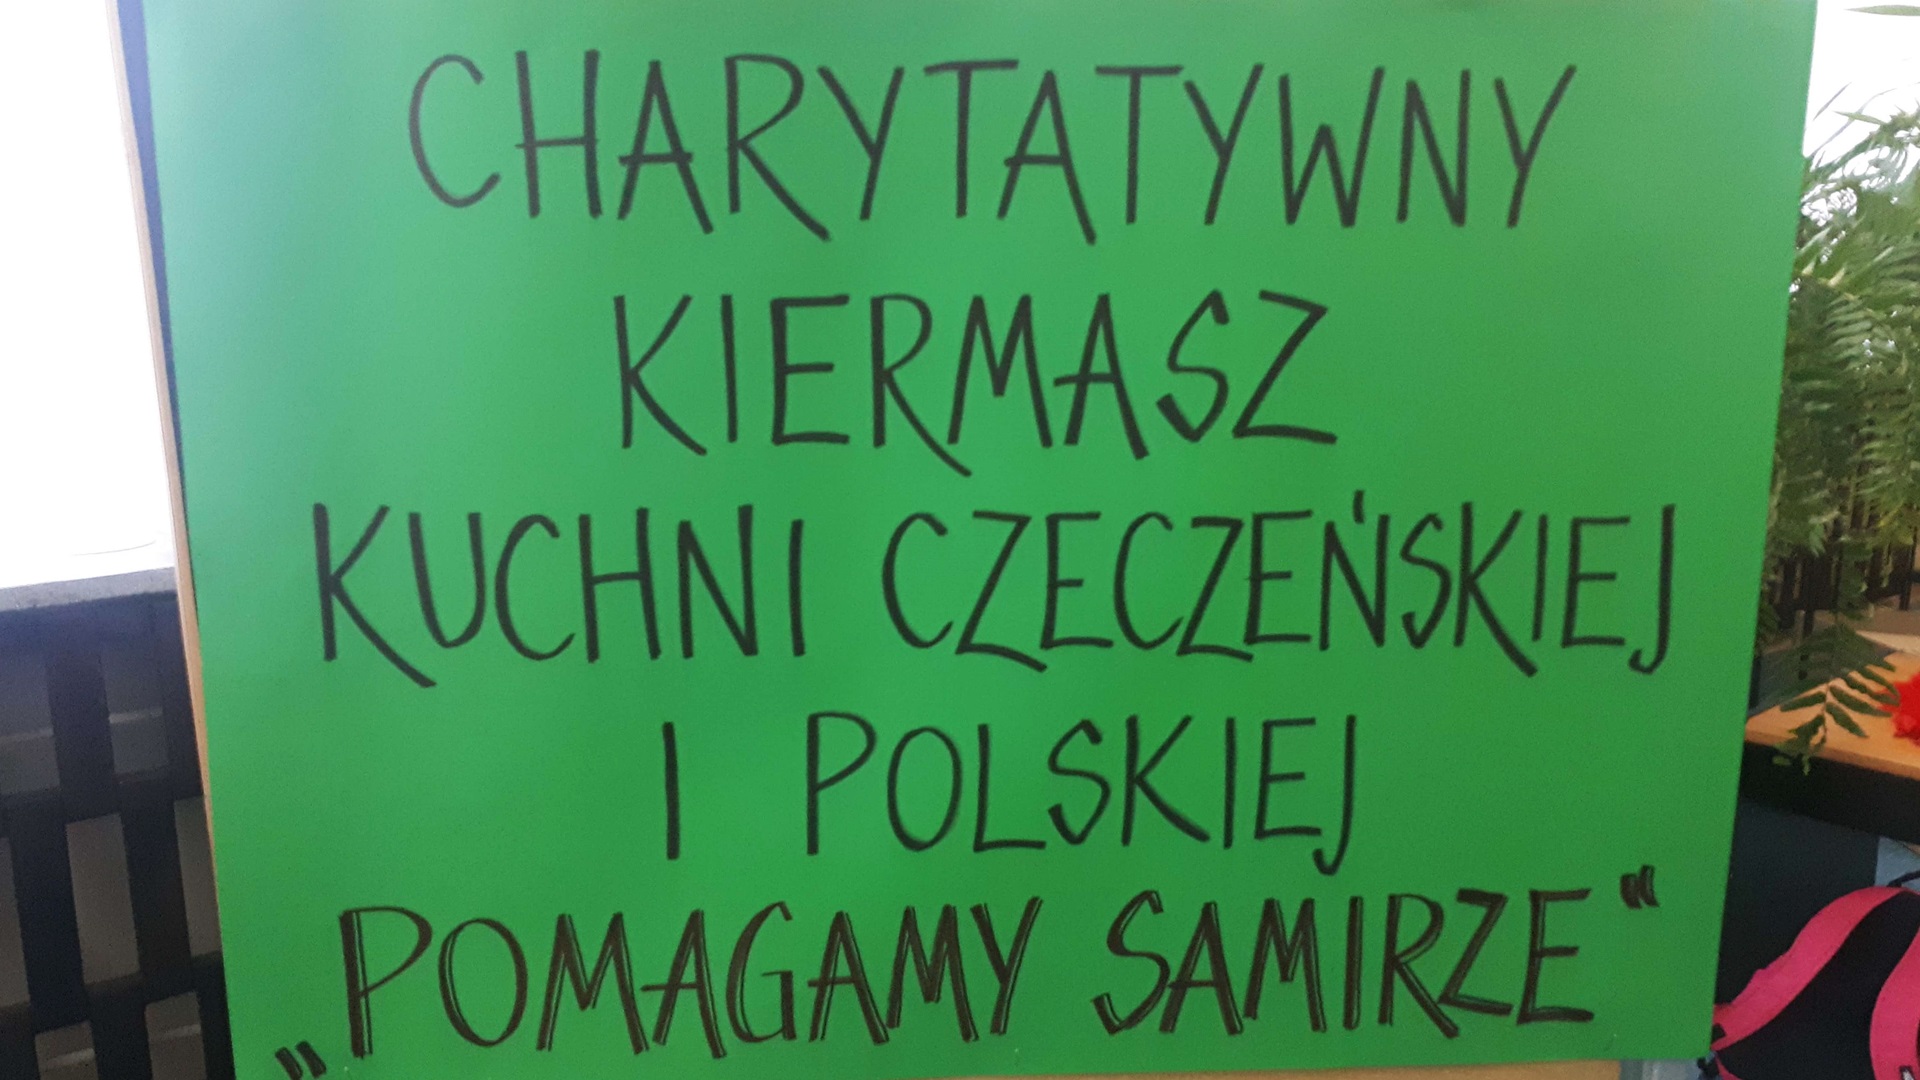 CHARYTATYWNY
KIERMASZ
KUCHNI CZECZEŃSKIEJ
I POLSKIEJ
„POMAGAMY SAMIRZE“